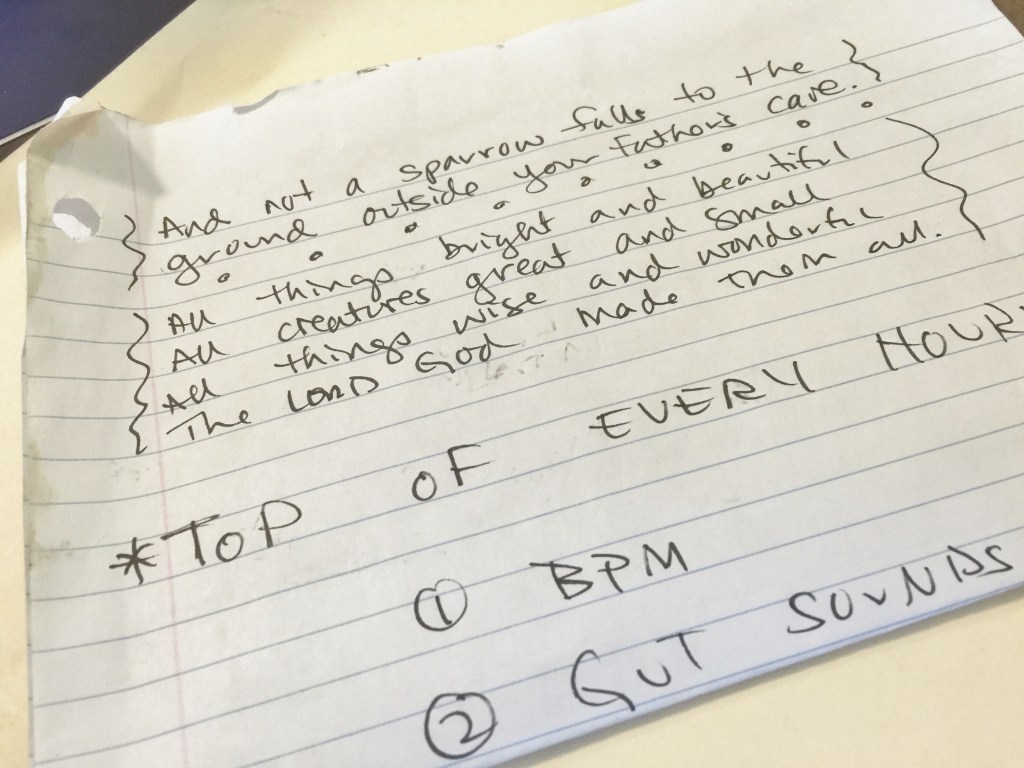 And not a sparrow falls to the
ground outside your Father's care.
All things bright and beautiful
All creatures great and small
All things wise and wonderful
The LORD God made them all.
*TOP OF EVERY HOUR
① BPM
② GUT SOUNDS